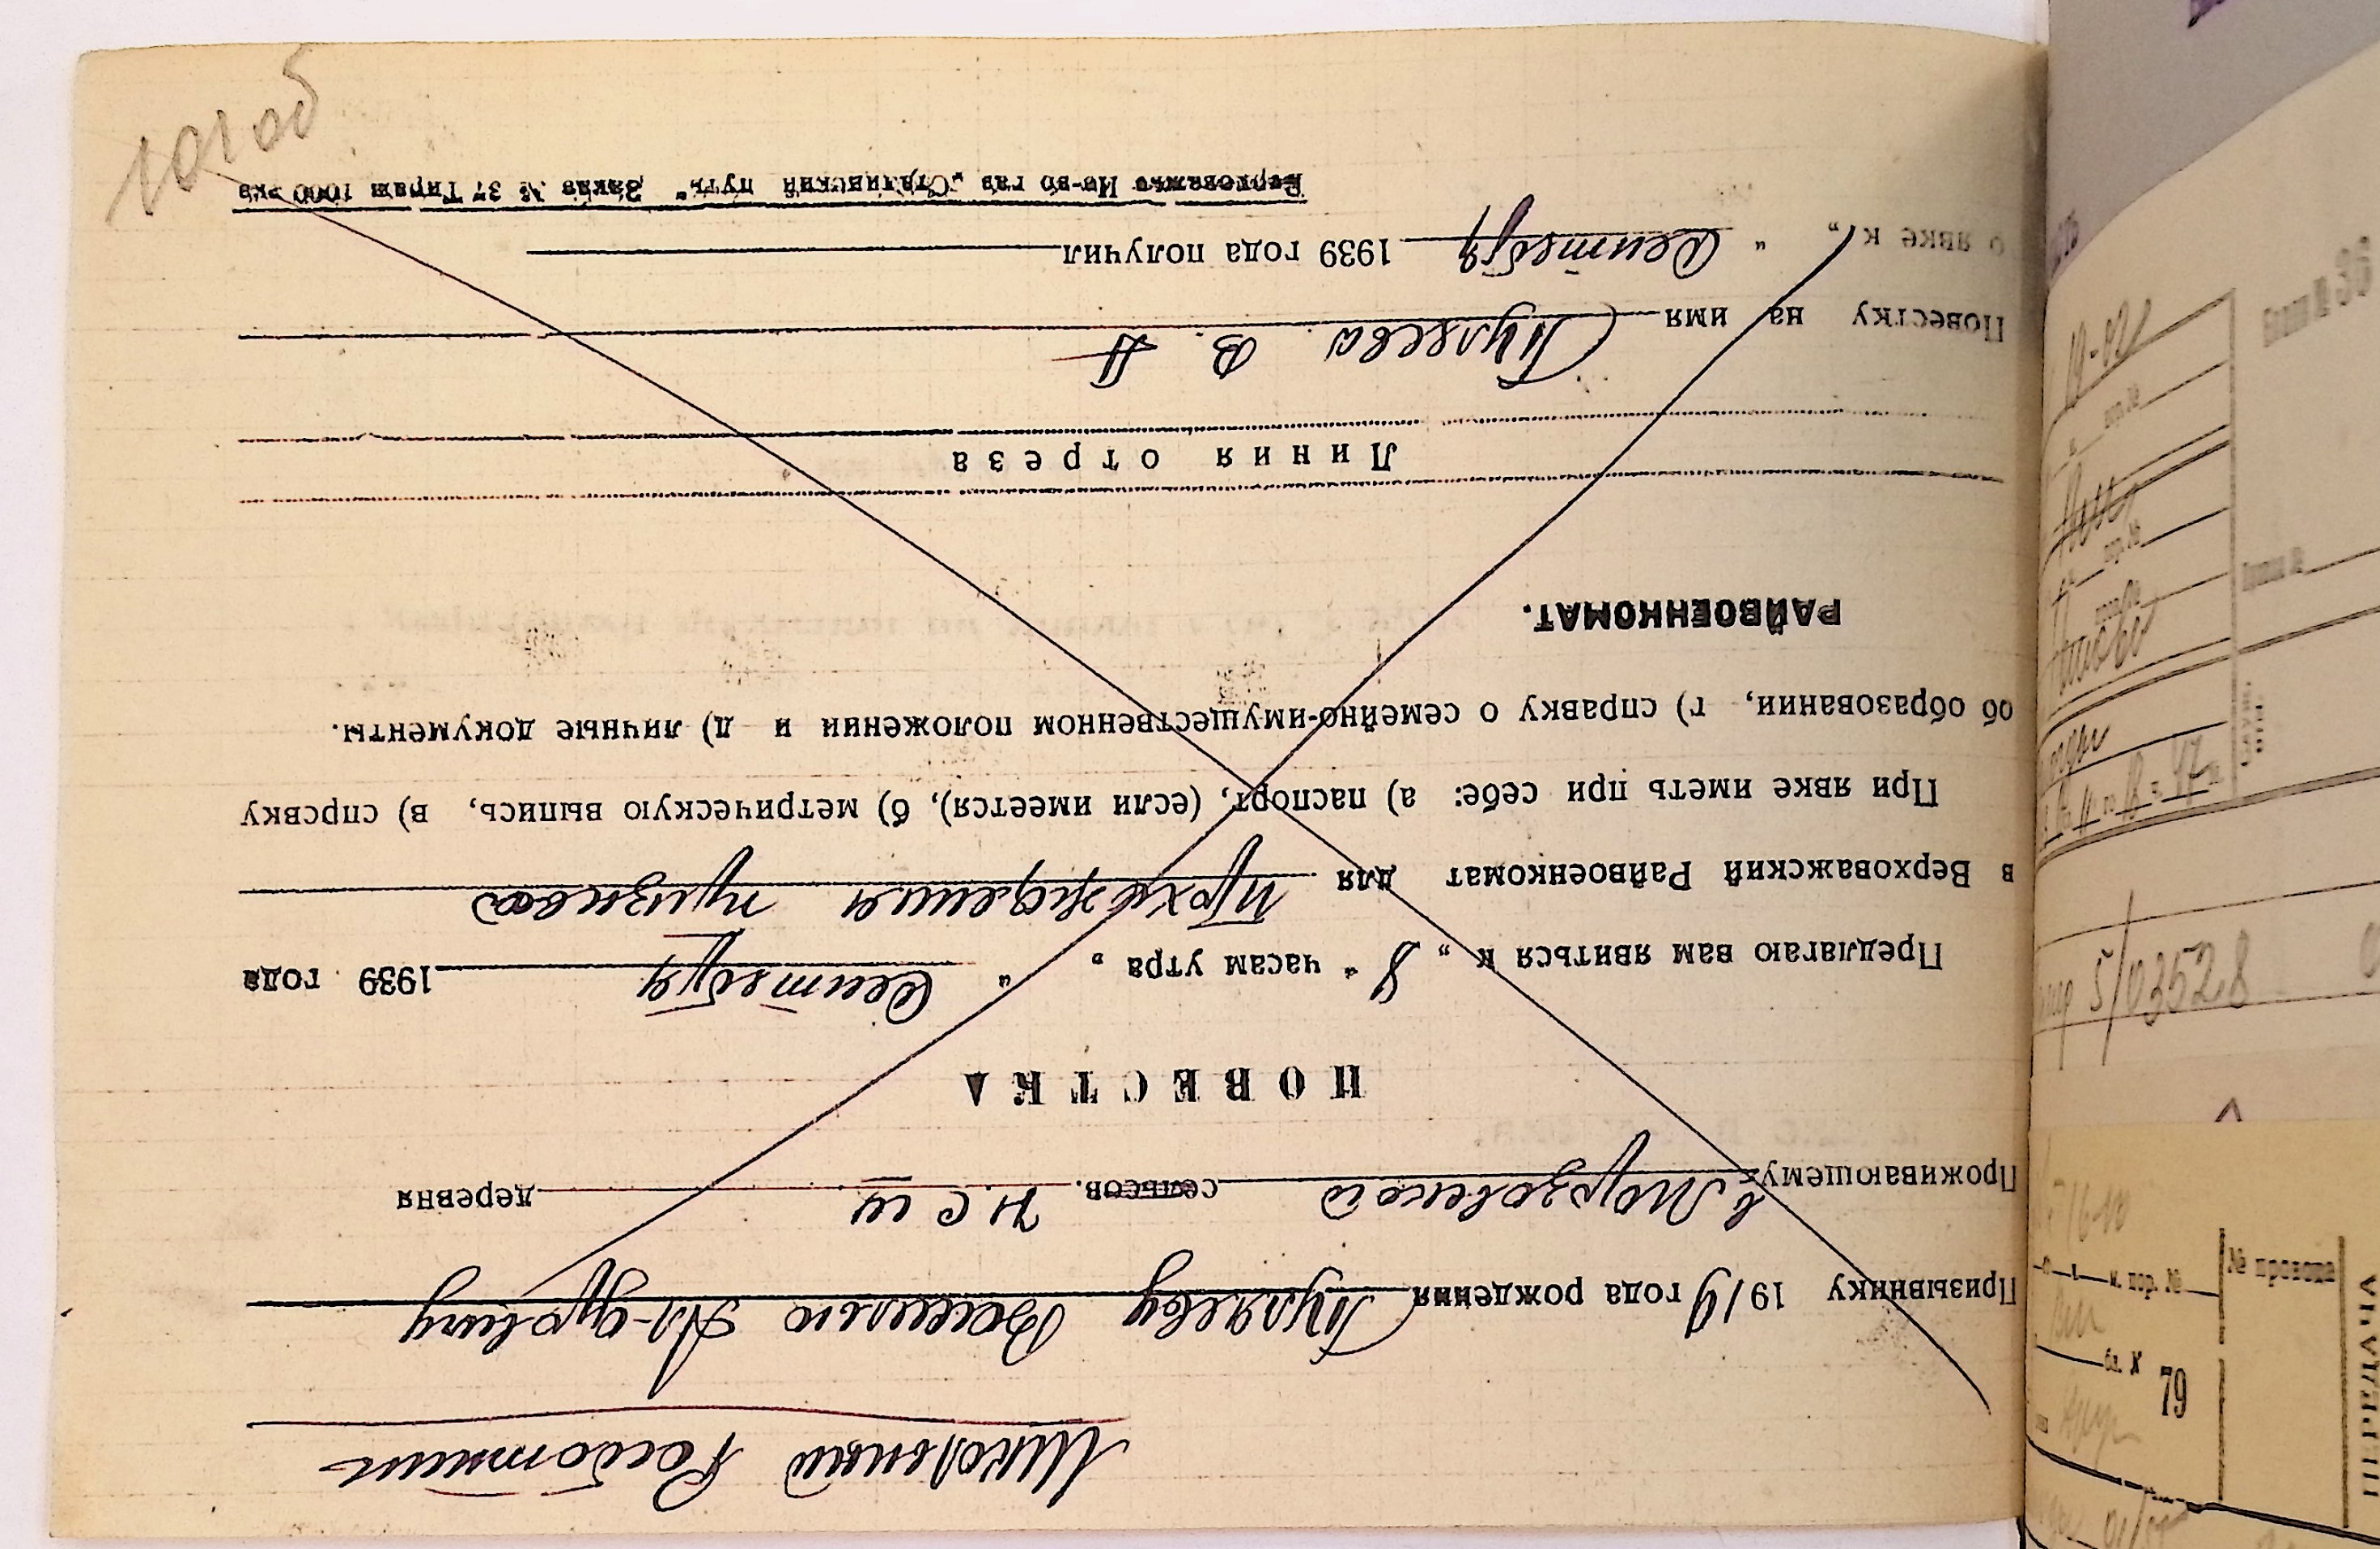 Школьный Работник
Призывнику 1919 года рождения Туляеву Василию Ал-дровичу
Проживающему в Морозовской сельсов. НСШ деревня
ПОВЕСТКА
Предлагаю вам явиться к „ 8 “ часам утра „ “ Сентября 1939 года
в Верховажский Райвоенкомат для прохождения призыва
При явке иметь при себе: а) паспорт, (если имеется), б) метрическую выпись, в) спрсвку
об образовании, г) справку о семейно-имущественном положении и д) личные документы.
РАЙВОЕНКОМАТ.
Линия отреза
Повестку на имя Туляева В. А
о явке к „ “ Сентября 1939 года получил
Верховажье Из-во газ „Сталинский путь“ Заказ № 37 Тираж 1000 экз
101 об
5/03528
№ провода
79